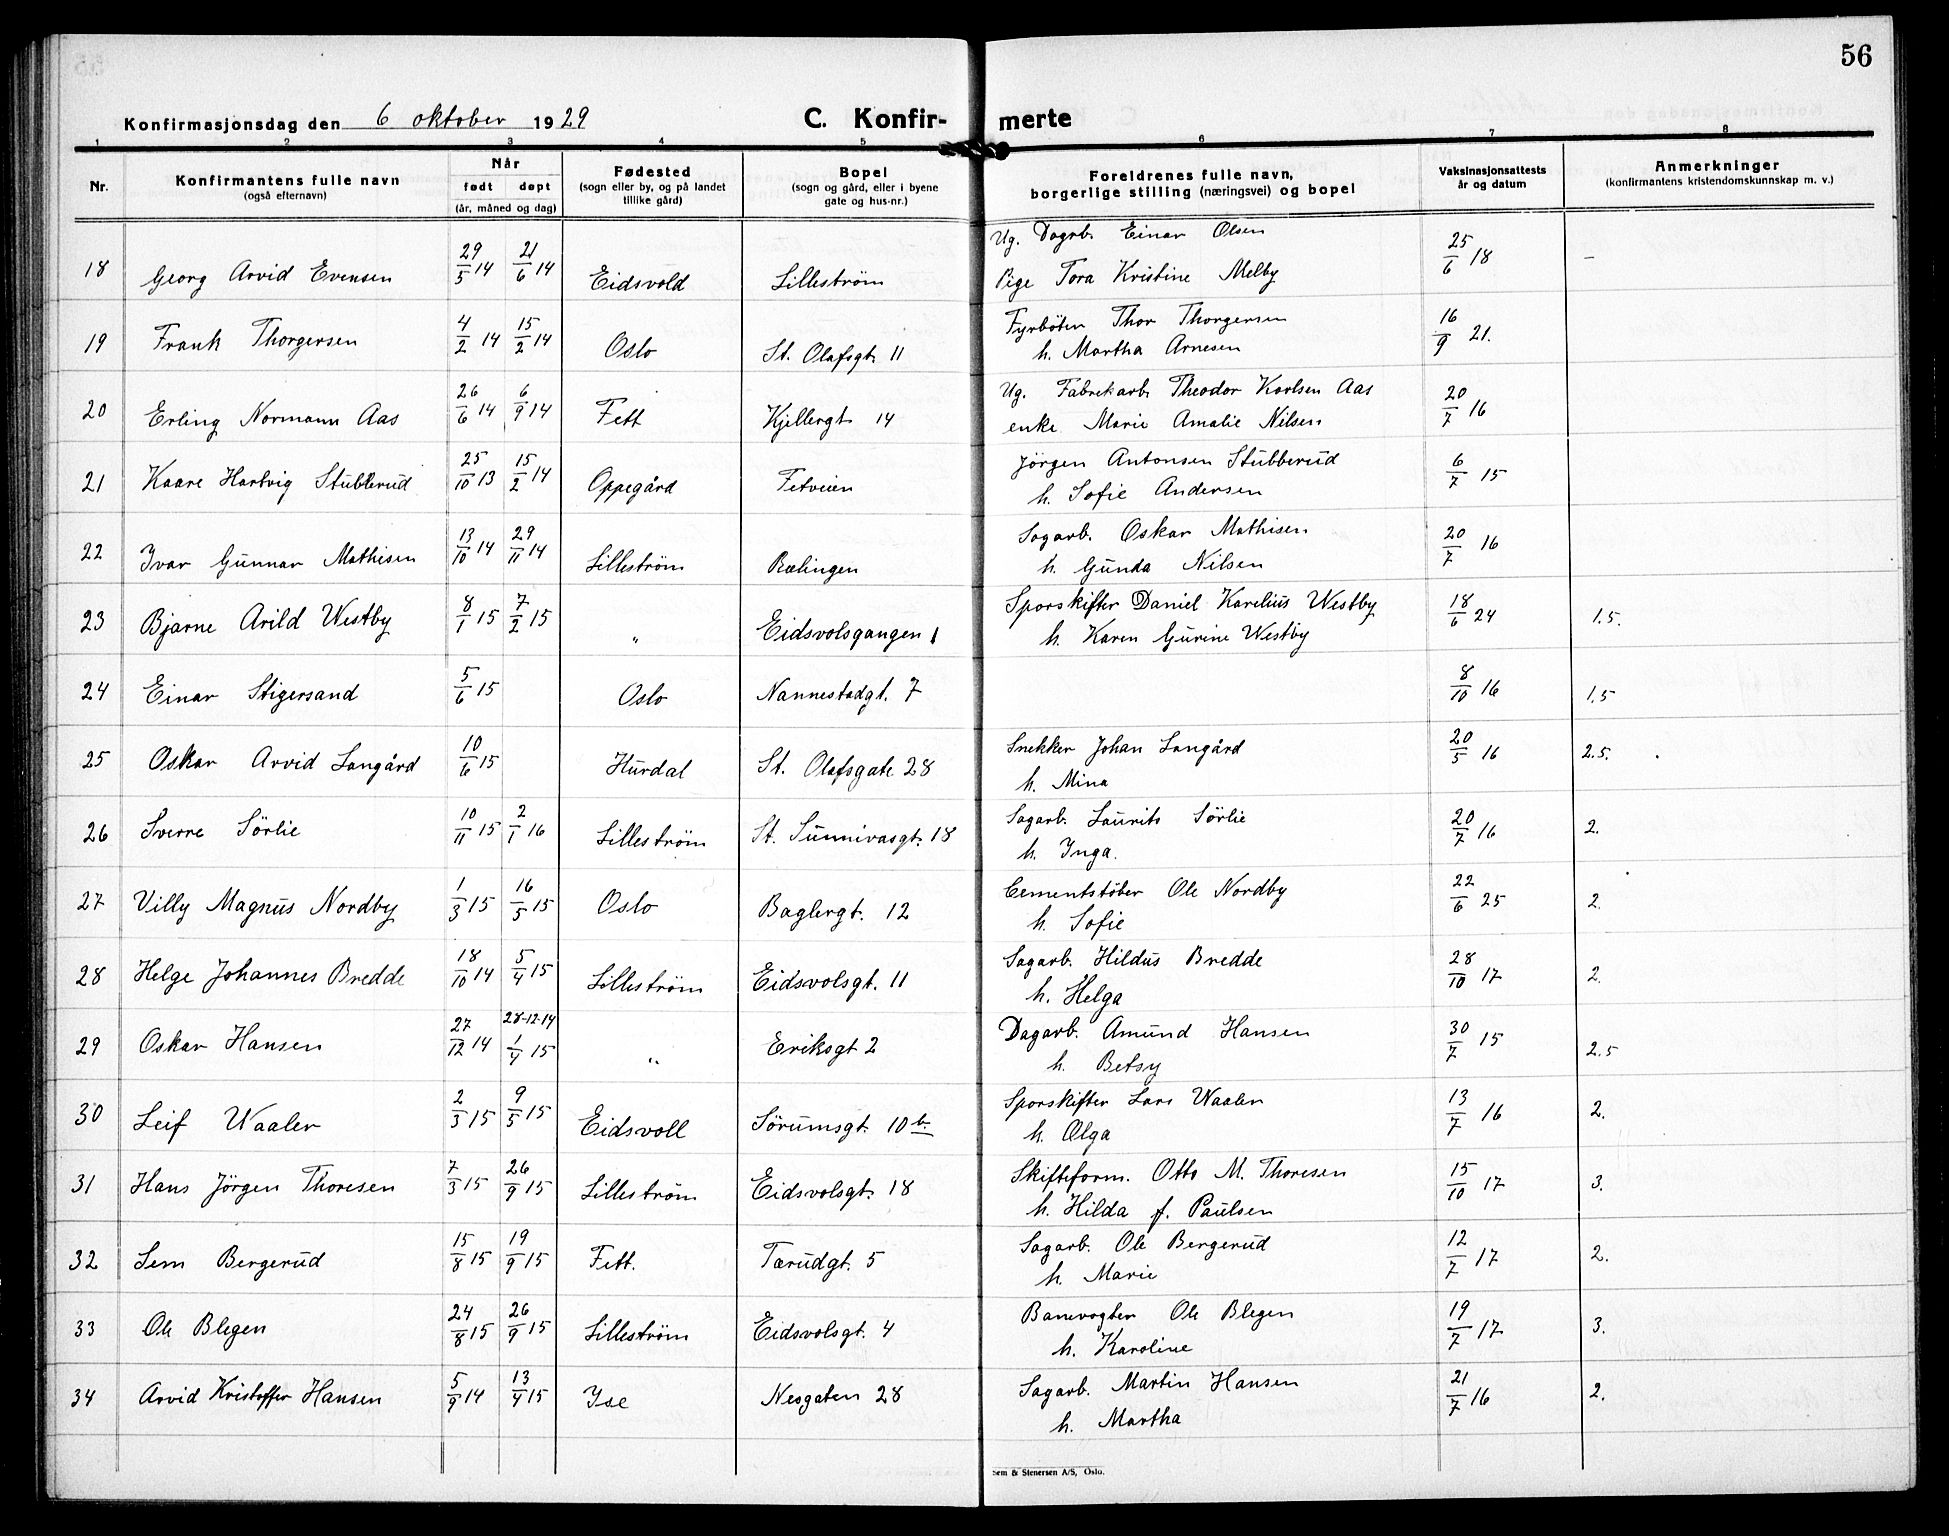 56
Konfirmasjonsdag den 6 oktober 1929 C. Konfirmerte
1 2 3 4 5 6 7 8
Nr. Konfirmantens fulle navn (også efternavn) Når født døpt (år, måned og dag) Fødested (sogn eller by, og på landet tillike gård) Bopel (sogn og gård, eller i byene gate og hus-nr.) Foreldrenes fulle navn, borgerlige stilling (næringsvei) og bopel Vaksinasjonsattests år og datum Anmerkninger (konfirmantens kristendomskunnskap m. v.)
18 Georg Arvid Evensen 29/5 14 21/6 14 Eidsvold Lilleström Ug. Dagrb. Einar Olsen 25/6 18 –
Pige Tora Kristine Melby
19 Frank Thorgersen 4/2 14 15/2 14 Oslo St. Olafsgt. 11 Fyrböter Thor Thorgersen 16/9 21.
h. Martha Arnesen
20 Erling Normann Aas 26/6 14 6/9 14 Fett Kjellergt 14 Ug. Fabrekarb. Theodor Karlsen Aas 20/7 16
enke Marie Amalie Nilsen
21 Kaare Hartvig Stubberud 25/10 13 15/2 14 Oppegård Fetveien Jörgen Antonsen Stubberud 6/7 15
h. Sofie Andersen
22 Ivar Gunnar Mathisen 13/10 14 29/11 14 Lilleström Rælingen Sagarb. Oskar Mathisen 20/7 16
h. Gunda Nilsen
23 Bjarne Arild Westby 8/1 15 7/2 15 " Eidsvolsgangen 1 Sporskifter Daniel Karelius Westby 18/6 24 1.5.
h. Karen Gurine Westby
24 Einar Stigersand 5/6 15 Oslo Nannestadgt. 7 8/10 16 1,5
25 Oskar Arvid Langård 10/6 15 Hurdal St. Olafsgate 28 Snekker Johan Langård 20/5 16 2.5.
h. Mina
26 Sverre Sörlie 10/11 15 2/1 16 Lilleström St. Sunnivasgt. 18 Sagarb. Laurits Sörlie 20/7 16 2.
h. Inga.
27 Villy Magnus Nordby 1/3 15 16/5 15 Oslo Baglergt. 12 Cementstöber Ole Nordby 22/6 25 2.
h. Sofie
28 Helge Johannes Bredde 18/10 14 5/4 15 Lilleström Eidsvolsgt. 11 Sagarb. Hildus Bredde 28/10 17 2.
h. Helga
29 Oskar Hansen 27/12 14 28-12-14 1/4 15 " Eriksgt 2 Dagarb. Amund Hansen 30/7 15 2.5
h. Betsy
30 Leif Waaler 2/3 15 9/5 15 Eidsvoll Sörumsgt. 10 b. Sporskifter Lars Waaler 13/7 16 2.
h. Olga
31 Hans Jörgen Thoresen 7/3 15 26/9 15 Lilleström Eidsvolsgt. 18 Skifteform. Otto M. Thoresen 15/10 17 3.
h. Hilda f. Paulsen
32 Sem Bergerud 15/8 15 19/9 15 Fett. Tærudgt. 5 Sagarb. Ole Bergerud 12/7 17 2.
h. Marie
33 Ole Blegen 24/8 15 26/9 15 Lilleström Eidsvolsgt. 4 Banevogter Ole Blegen 19/7 17 3.
h. Karoline
34 Arvid Kristoffer Hansen 5/9 14 13/4 15 Yse Nesgaten 28 Sagarb. Martin Hansen 21/7 16 2.
h. Martha
Sem & Stenersen A/S, Oslo.